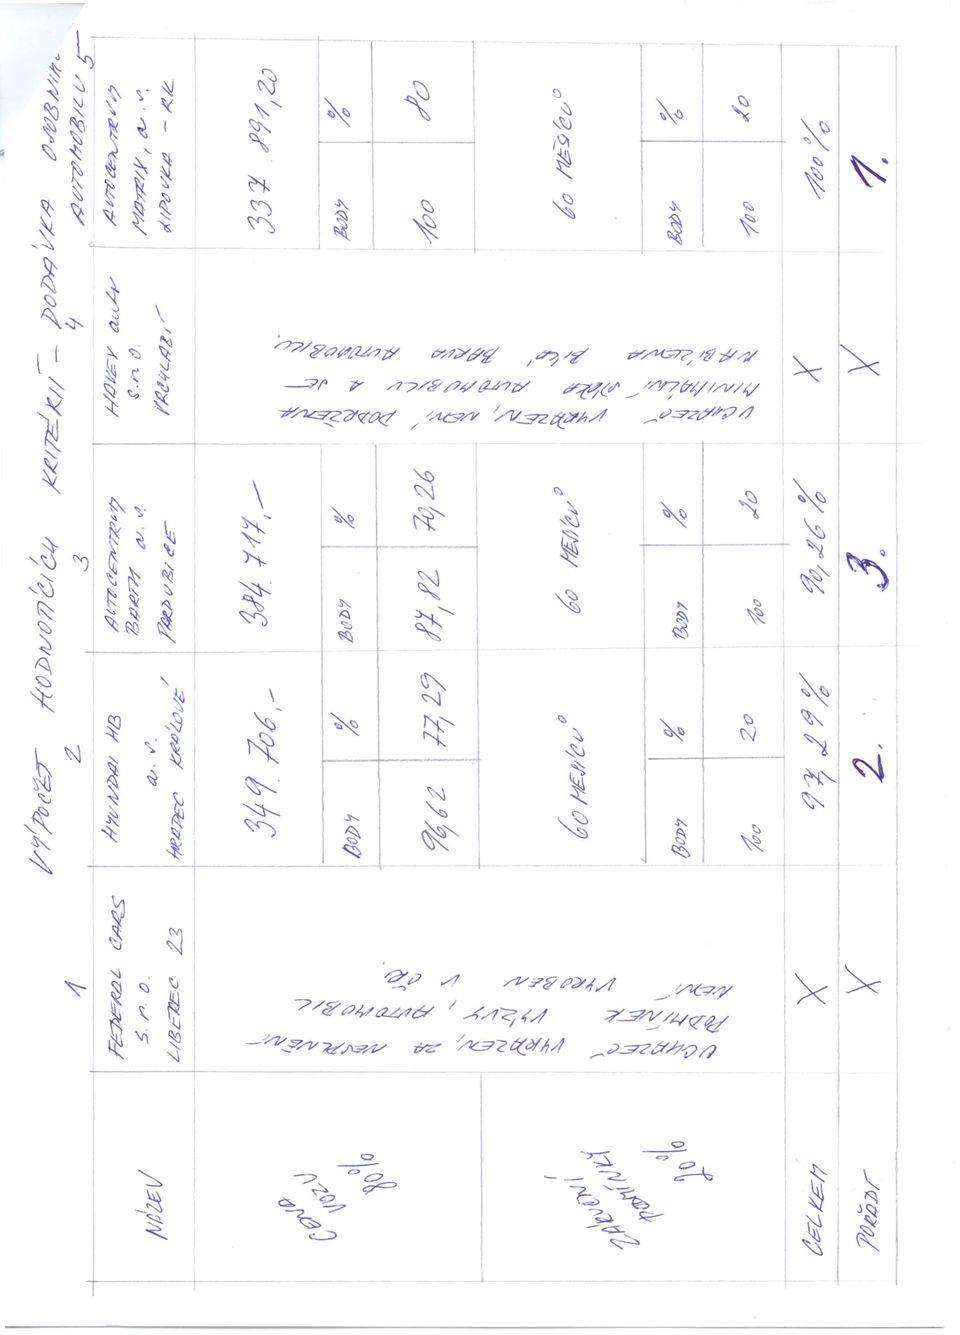 VÝPOČET HODNOTÍCÍCH KRITÉRIÍ - DODÁVKA OSOBNÍHO
AUTOMOBILU
1 2 3 4 5
NÁZEV
FEDERAL CARS
s.r.o.
LIBEREC 23
HYUNDAI HB
a.s.
HRADEC KRÁLOVÉ
AUTOCENTRUM
BARTH a.s.
PARDUBICE
HAVEX auto
s.r.o.
VRCHLABÍ
AUTOCENTRUM
MATRIX, a.s.
LIPOVKA - RK
CENA
VOZU
80%
349 706,-
384 717,-
337 891,20
BODY %
BODY %
BODY %
96,62 77,29
87,82 70,26
100 80
ZÁRUČNÍ
PODMÍNKY
20%
60 MĚSÍCŮ
60 MĚSÍCŮ
60 MĚSÍCŮ
BODY %
BODY %
BODY %
100 20
100 20
100 20
UCHAZEČ VYŘAZEN, ZA NESPLNĚNÍ
PODMÍNEK VÝZVY, AUTOMOBIL
NENÍ VYROBEN V ČR.
UCHAZEČ VYŘAZEN, NENÍ DODRŽENA
MINIMÁLNÍ DÉLKA AUTOMOBILU A JE
NABÍZENA BÍLÁ BARVA AUTOMOBILU.
CELKEM X 97,29% 90,26% X 100%
POŘADÍ X 2. 3. X 1.